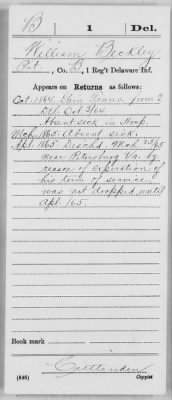 B 1 Del.
William Beckley
Pvt., Co. D, 1 Reg't Delaware Inf.
Appears on Returns as follows:
Oct. 1864. Gain Trans. from 2
Del. Oct 3/64
Absent sick in Hosp.
Mch. 1865. Absent sick.
Apl. 1865. Dischd. Mch 23/65
near Petersburg Va. by
reason of expiration of
his term of service.
was not dropped until
Apl. 1865.
Book mark
(646) Crittenden
Copyist